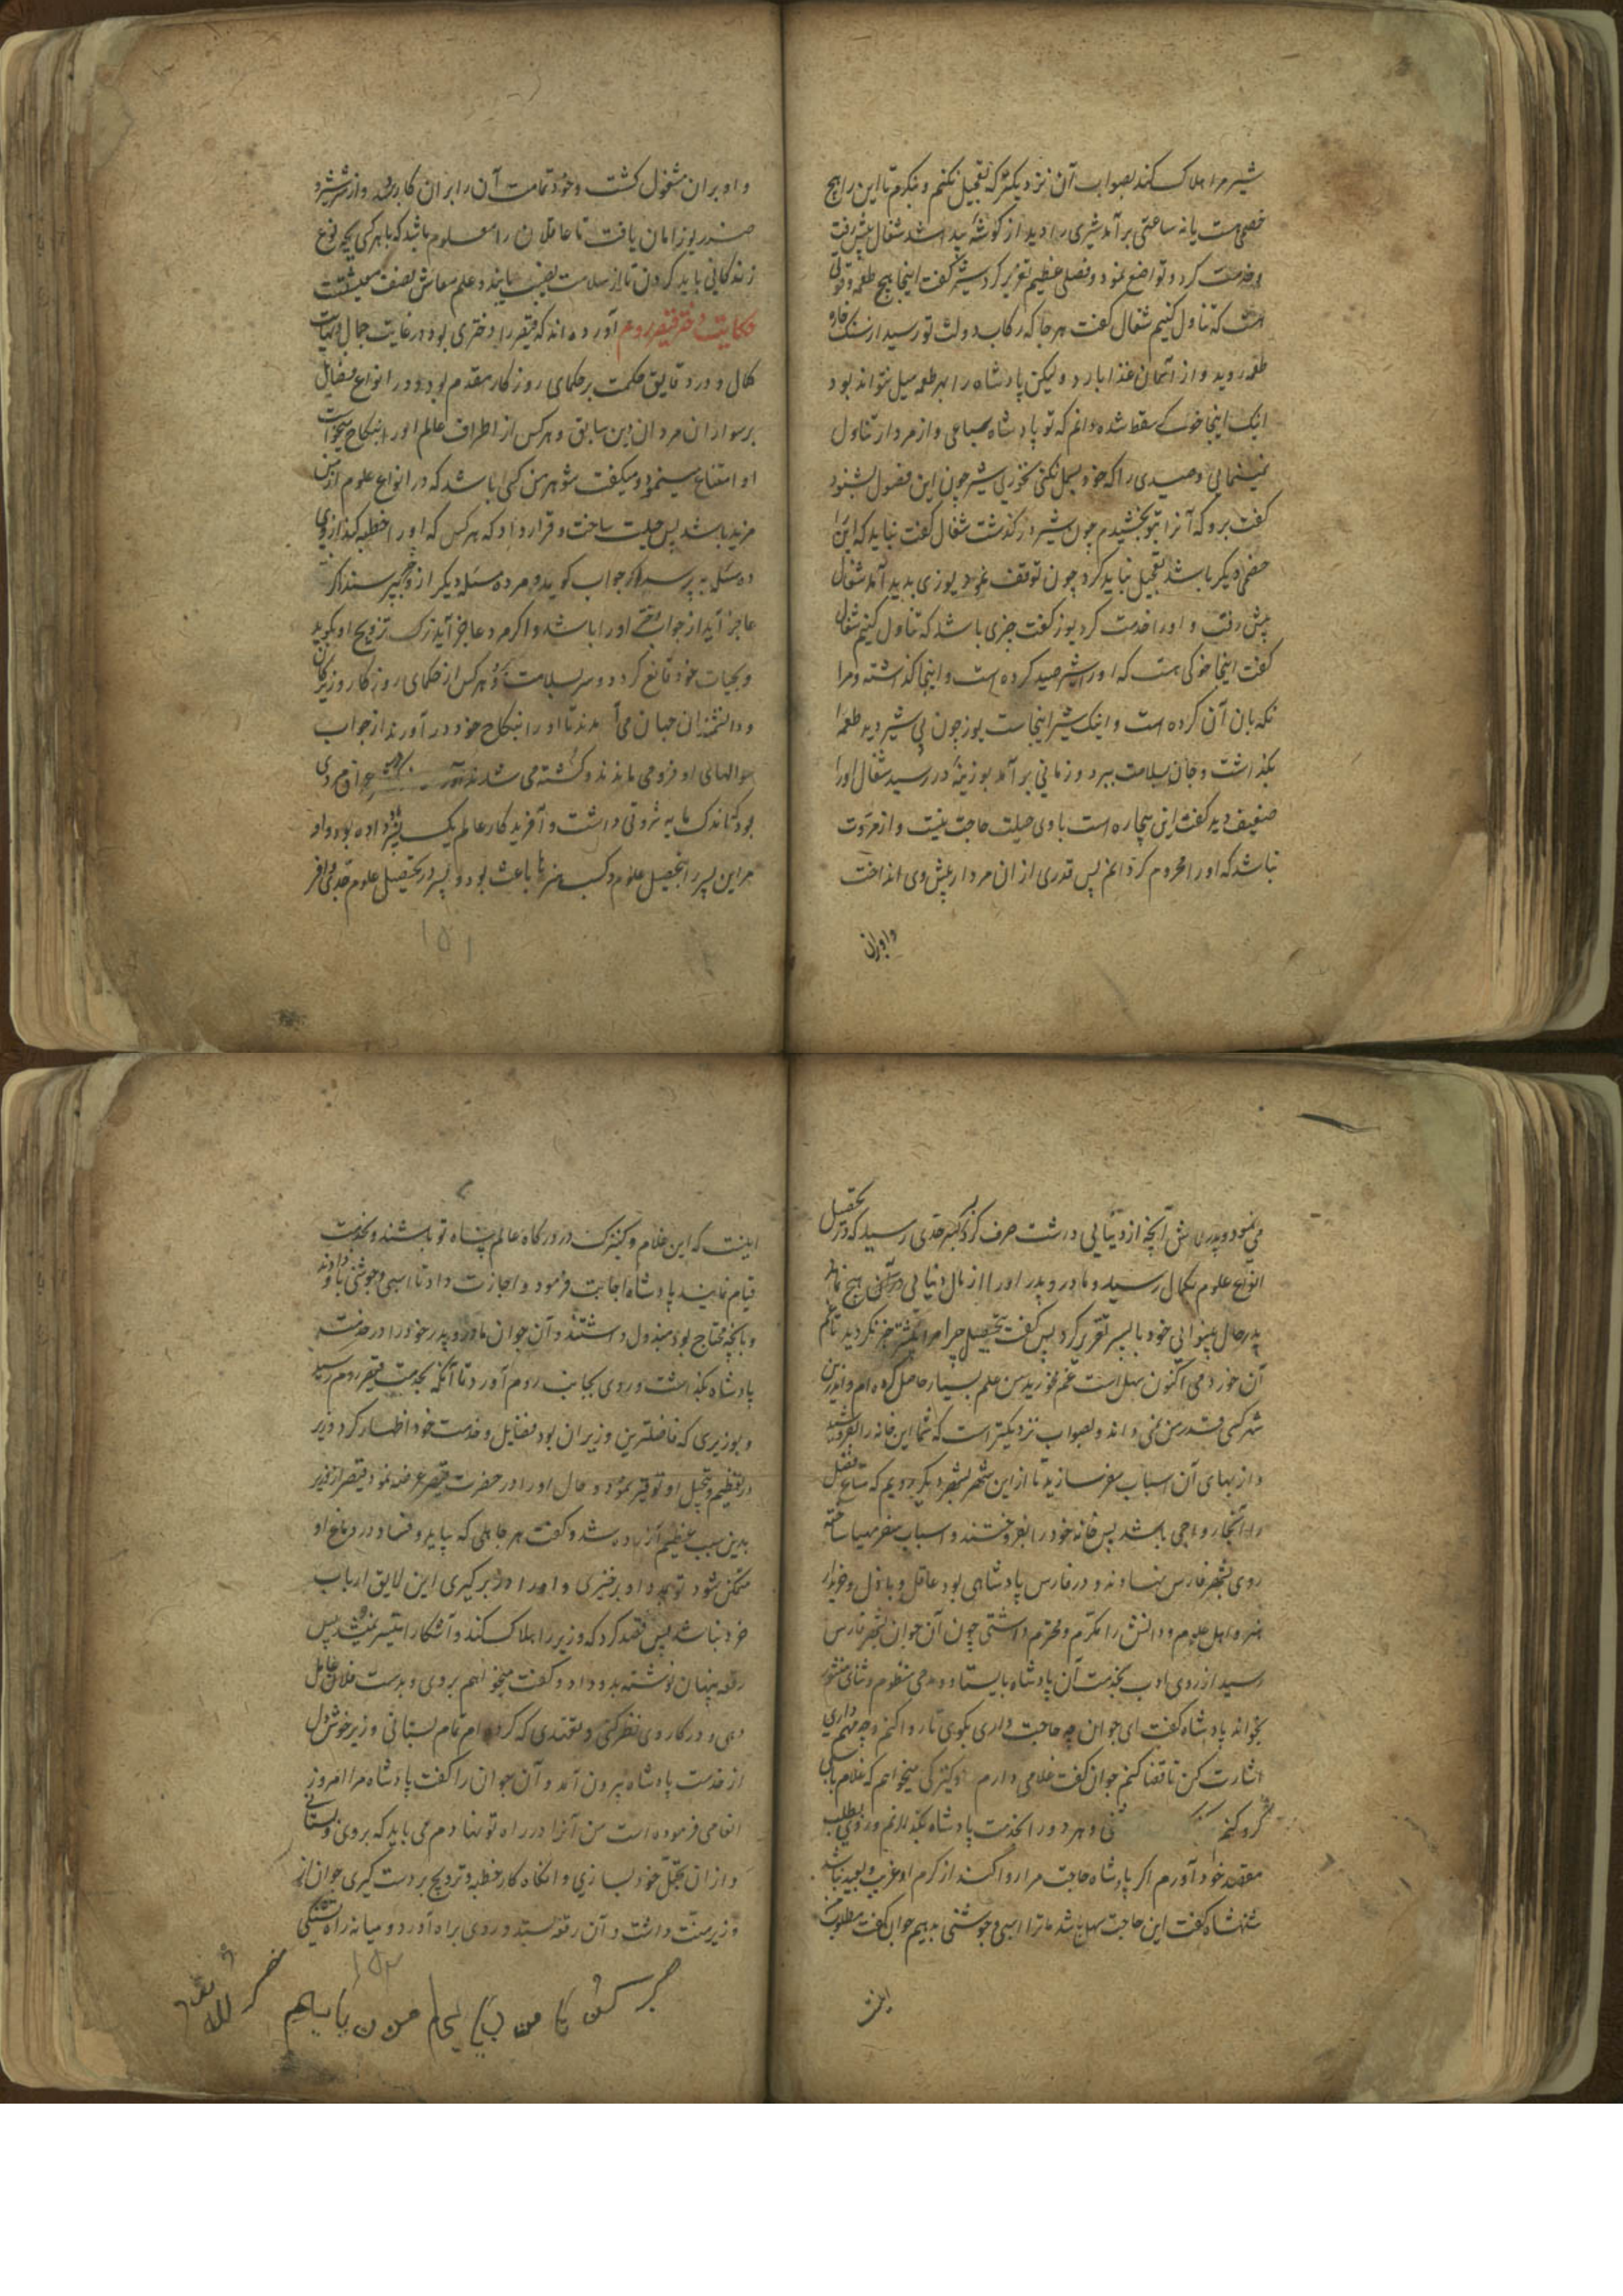 شیر مرا هلاک کند بصواب آن نزدیکتر که تعجیل نکنم و بنکرم تا این را هیچ
خصمی هست یا نه ساعتی برآمد شیری را دید از کوشهٔ پیدا شد شغال پیش رفت
و خدمت کرد و تواضع نمود و فصلی عظیم تقریر کرد شیر کفت اینجا هیچ طعمه و قوتی
هست که تناول کنیم شغال کفت هر جا که رکاب دولت تو رسید از سنک خاره
طعمه روید و از آسمان غذا بارد ولیکن پادشاه را بهر طعمه میل نتواند بود
اینک اینجا خوکی سقط شده دانم که تو پادشاه سباعی و از مردار تناول
نمینمایی و صیدی را که خود بسمل نکنی نخوری شیر چون این فصول بشنود
کفت برو که آنرا بتو بخشیدم چون شیر در کذشت شغال کفت نباید که این را
خصمی دیکر باشد تعجیل نباید کرد چون توقف نمود یوزی بدید آمد شغال
پیش رفت و او را خدمت کرد یوز کفت چیزی باشد که تناول کنیم شغال
کفت اینجا خوکی هست که او را شیر صید کرده است و اینجا کذاشته و مرا
نکهبان آن کرده است و اینک شیر اینجاست یوز چون پی شیر دید طعمه را
بکذاشت و جان بسلامت ببرد و زمانی برآمد بوزینهٔ در رسید شغال او را
ضعیف دید کفت این بیچاره است با وی حیلت حاجت نیست و از مروت
نباشد که او را محروم کردانم پس قدری از ان مردار پیش وی انداخت
و او بران
و او بران مشغول کشت و خود تمامت آن را بران کار برد و از شر شیر و
ضرر یوز امان یافت تا عاقلان را معلوم باشد که با هر کسی بچه نوع
زندکانی باید کردن تا از سلامت نصیب یابند و علم معاش نصف معیشتست
حکایت دختر قیصر روم آورده اند که قیصر را دختری بود در غایت جمال و نهایت
کمال و در دقایق حکمت بر حکمای روزکار مقدم بود و در انواع فضایل
بر سواران مردان دین سابق و هر کس از اطراف عالم او را بنکاح میخواست
او امتناع مینمود و میکفت شوهر من کسی باشد که در انواع علوم از من
مزید باشد پس حیلت ساخت و قرار داد که هر کس که او را خطبه کند از وی
ده مسئله بپرسد اکر جواب کوید و مرد ده مسئله دیکر از و بپرسد اکر
عاجز آید از جواب زن او را باشد و اکر مرد عاجز آید ترک تزویج او بکوید
و بحیات خود قانع کردد و سر بسلامت برد هر کس از حکمای روزکار و زیرکان
و دانشمندان جهان می آمدند تا او را بنکاح خود در آورند از جواب
سوالهای او فرو می ماندند و کشته می شدند جوانمردی
بود که اندک مایه ثروتی داشت و آفریدکار عالم یک پسر داده بود و او
مر این پسر را بتحصیل علوم و کسب هنرها باعث بود و پسر در تحصیل علوم جدی وافر
۱۵۱
می نمود و پدر بروی آنچه از دنیایی داشت صرف کرد تا پسر بحدی رسید که در تحصیل
انواع علوم بکمال رسید و مادر و پدر او را از مال دنیایی در دست هیچ نماند
پدر حال بینوایی خود با پسر تقریر کرد پس کفت بتحصیل چرا مرا پیشتر خبر نکردید تا غم
آن خوردمی اکنون سهل است غم مخورید من علم بسیار حاصل کرده ام و اندرین
شهر کسی قدر من نمی داند و بصواب نزدیکتر است که شما این خانه را بفروشید
و از بهای آن اسباب سفر سازید تا از این شهر بشهر دیکر رویم که متاع فضل
را آنجا رواجی باشد پس خانه خود را بفروختند و اسباب سفر مهیا ساخته
روی بشهر فارس نهادند و در فارس پادشاهی بود عاقل و باذل و خریدار
هنر و اهل علوم و دانش را مکرم و محترم داشتی چون آن جوان بشهر فارس
رسید از روی ادب بخدمت آن پادشاه بایستاد و مدحی منظوم و ثنای منثور
بخواند پادشاه کفت ای جوان چه حاجت داری بکوی تا روا کنم و چه مهم داری
اشارت کن تا قضا کنم جوان کفت غلامی دارم و کنیزکی میخواهم که غلام باسبی
کرو کنم و هر دو را بخدمت پادشاه بکذارنم و روی بطلب
مقصد خود آورم اکر پادشاه حاجت مرا روا کند از کرم او غریب و بعید نباشد
شهنشاه کفت این حاجت سهل باشد ما ترا اسبی و جوشنی بدهیم جوان کفت مطلوب من
اینست
اینست که این غلام و کنیزک در درکاه عالم پناه تو باشند و بخدمت
قیام نمایند پادشاه اجابت فرمود و اجازت داد تا اسبی و جوشنی باو دادند
و بآنچه محتاج بود مبذول داشتند و آن جوان مادر و پدر خود را در خدمت
پادشاه بکذاشت و روی بجانب روم آورد تا آنکه بخدمت قیصر روم رسید
و بوزیری که فاضلترین وزیران بود فضایل و خدمت خود اظهار کرد وزیر
در تعظیم و تبجیل او توقیر نمود و حال او را در حضرت قیصر عرضه نمود قیصر از وزیر
بدین سبب عظیم آزرده شد و کفت هر جاهلی که بیاید و فساد در دماغ او
متمکن شود تو بمدد او برخیزی و او را در بر کیری این لایق ارباب
خرد نباشد پس قصد کرد که وزیر را هلاک کند و آشکارا میسر نمیشد پس
رقعه پنهان نوشته بدو داد و کفت میخواهم بروی و بدست فلان عامل
دهی و در کار وی نظر کنی و نقدی که کرده ام تمام بستانی وزیر خوش دل
از خدمت پادشاه بیرون آمد و آن جوان را کفت پادشاه مرا امروز
انعامی فرموده است من آنرا در راه تو نهادم می باید که بروی و بستانی
و از ان تجمل خود بسازی و آنکاه کار خطبه و تزویج بر دست کیری جوان از
وزیر منت داشت و آن رقعه بستد و روی براه آورد و میانه راه تشنکی
۱۵۲
صبر کن تا من